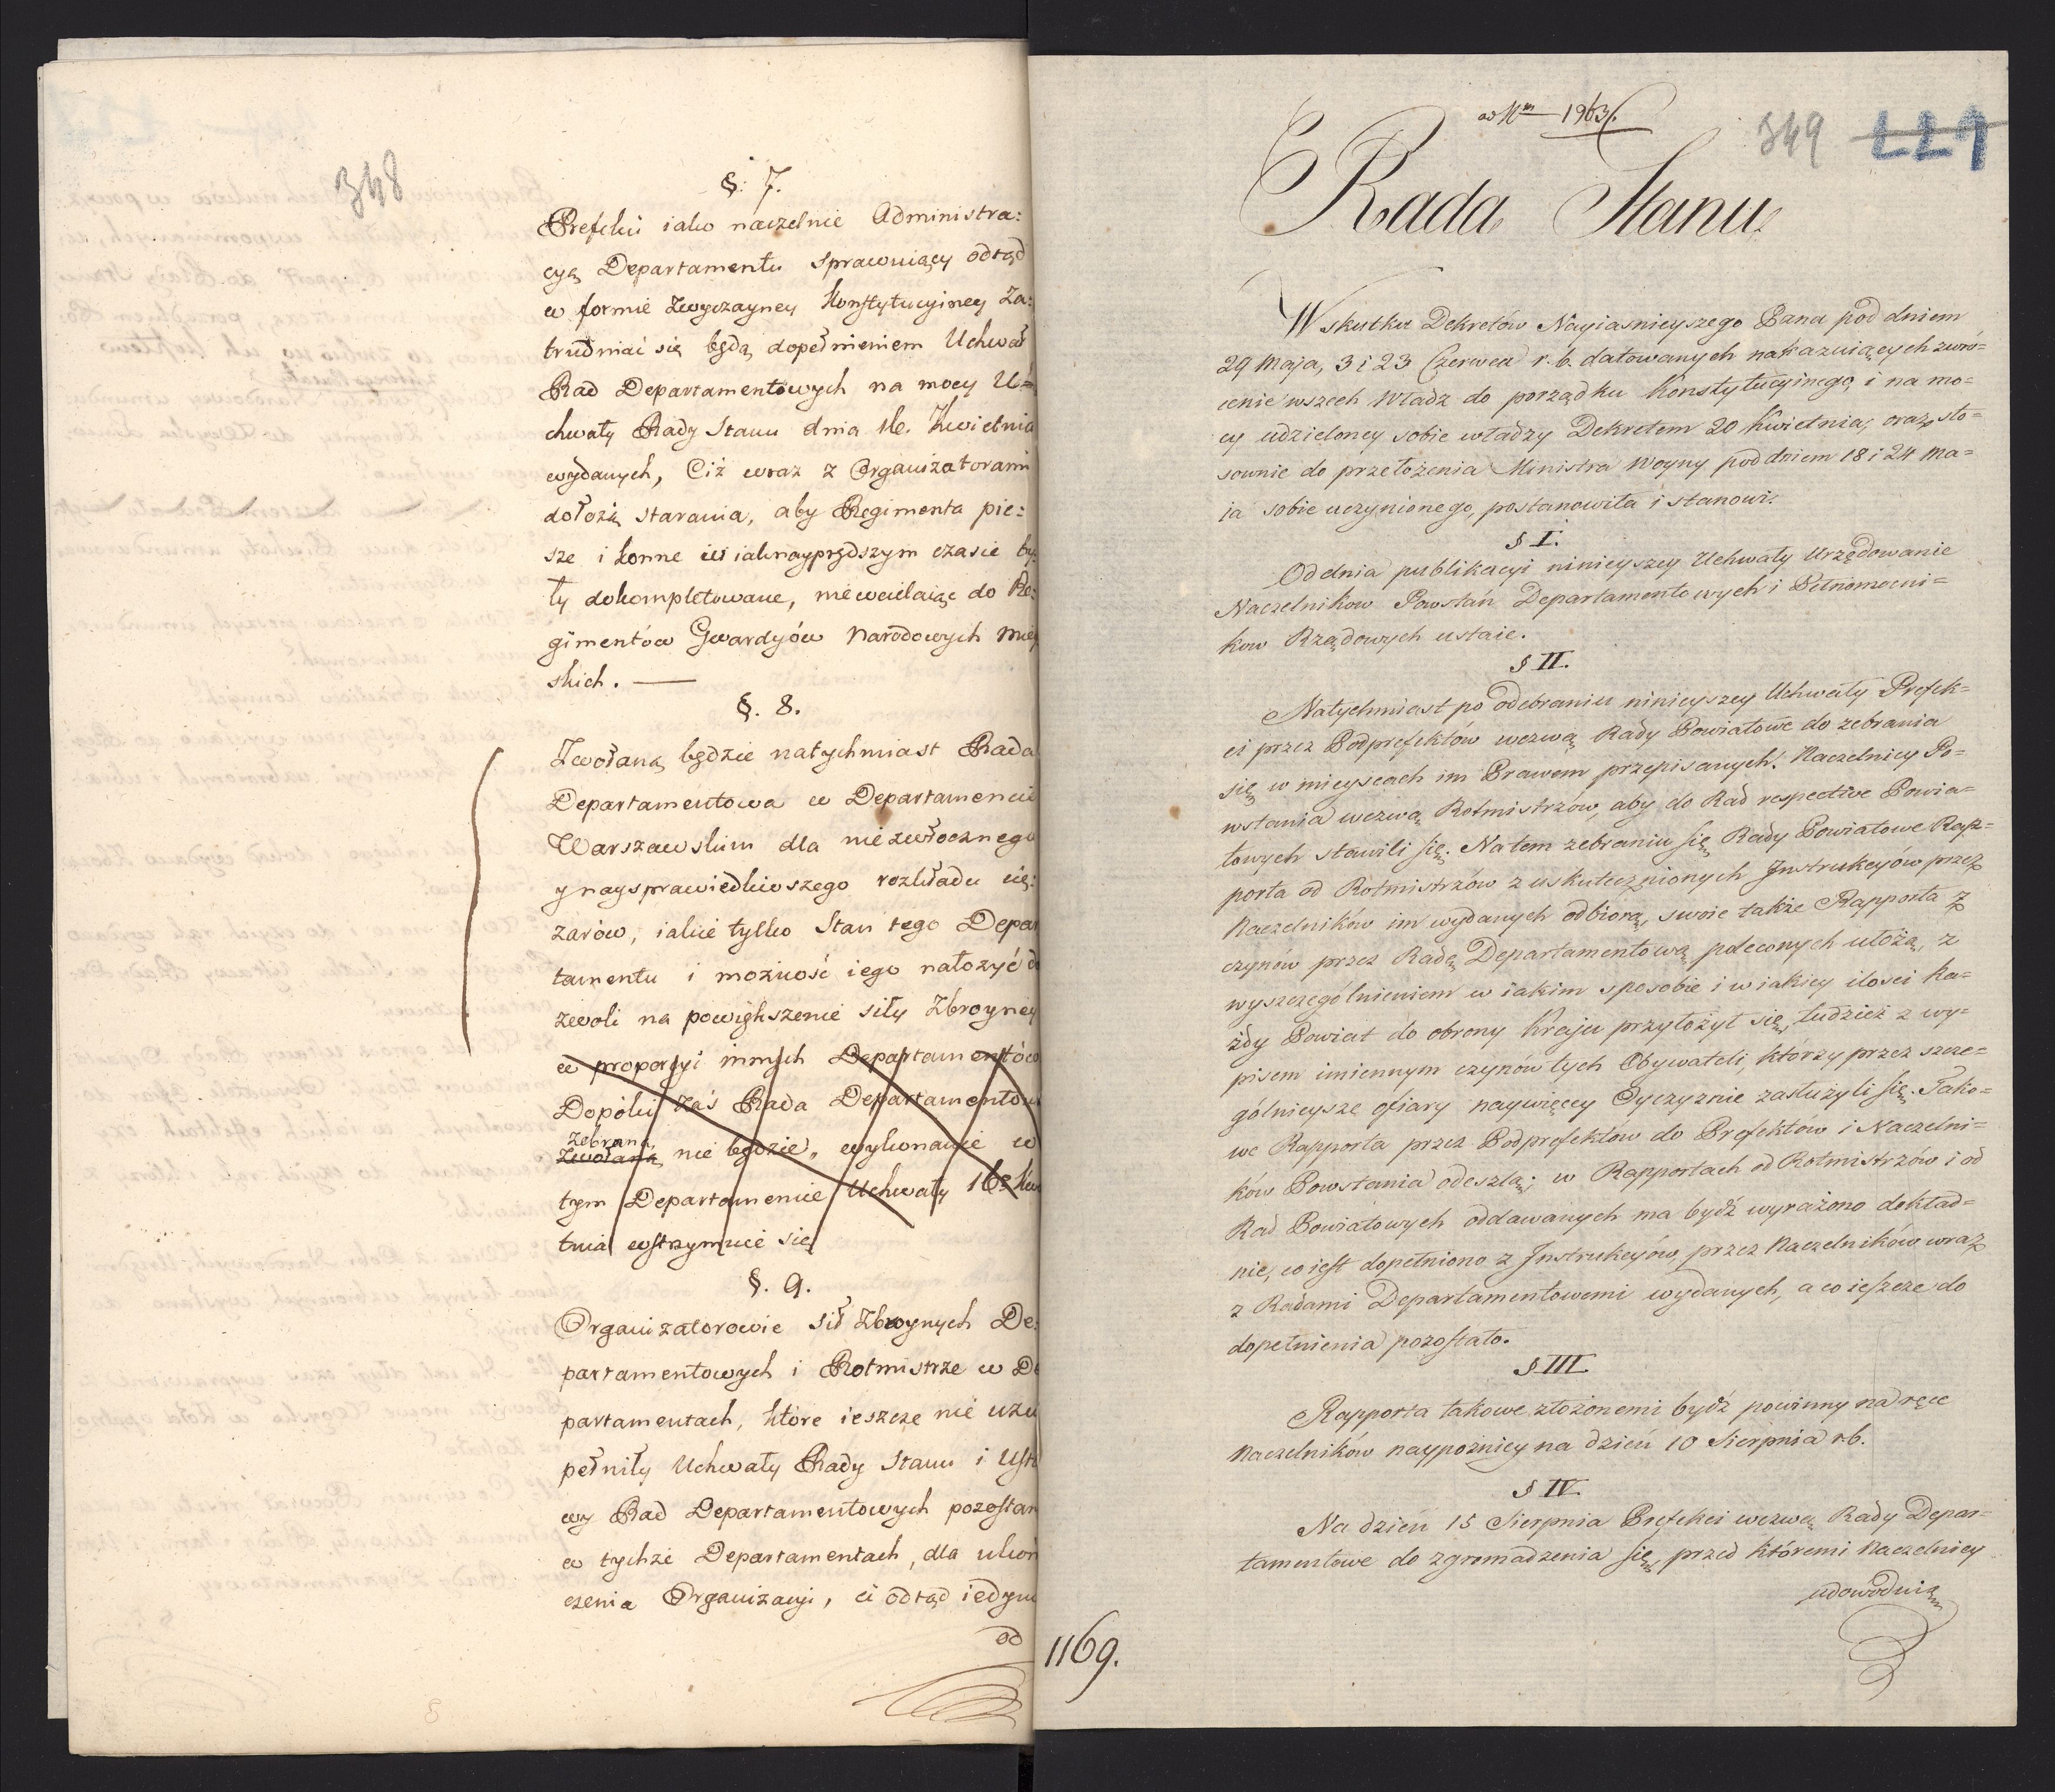 348
§. 7.
Prefekci iako naczelnie Administra:
cyą Departamentu sprawuiący odtąd
w formie zwyczayney Konstytucyiney za:
trudniać się będą dopełnieniem Uchwał
Rad Departamentowych na mocy U=
chwały Rady Stanu dnia 16. Kwietnia
wydanych, Ciż wraz z Organizatorami
dołożą starania, aby Regimenta pie:
sze i konne w iaknayprędszym czasie by
ły dokompletowane, niewcielaiąc do Re:
gimentów Gwardyów Narodowych miey
skich. —
§. 8.
Zwołaną będzie natychmiast Rada
Departamentowa w Departamencie
Warszawskim dla niezwłocznego
y naysprawiedliwszego rozkładu cię:
żarów, iakie tylko Stan tego Depar
tamentu i możność iego nałożyć do
zwoli na powiększenie siły Zbroyney
w proporcyi innych Departamentów
Dopóki zaś Rada Departamentow
zebraną
zwołaną nie będzie, wykonanie w
tym Departamencie Uchwały 16º Kwie
tnia wstrzymuie się
§. 9.
Organizatorowie sił zbroynych De:
partamentowych i Rotmistrze w De
partamentach, które ieszcze nie uzu
pełniły Uchwały Rady Stanu i Usta
wy Rad Departamentowych pozostan
w tychże Departamentach, dla ukoń
czenia Organizacyi, ci odtąd iedyni
od
ad Nrm 1963.
349 227
Rada Stanu
W skutku Dekretów Nayiasnieyszego Pana pod dniem
29 Maja, 3 i 23 Czerwca r. b. datowanych nakazuiących zwró=
cenie wszech Władz do porządku Konstytucyinego, i na mo=
cy udzieloney sobie władzy Dekretem 20 Kwietnia, oraz sto=
sownie do przełożenia Ministra Woyny pod dniem 18 i 24 Ma=
ia sobie uczynionego, postanowiła i stanowi.
§ I.
Od dnia publikacyi ninieyszey Uchwały Urzędowanie
Naczelnikow Powstań Departamentowych i Pełnomocni=
kow Rządowych ustaie.
§ II.
Natychmiast po odebraniu ninieyszey Uchwały Prefek=
ci przez Podprefektów wezwą Rady Powiatowe do zebrania
się w mieyscach im Prawem przepisanych. Naczelnicy Po=
wstania wezwą Rotmistrzów, aby do Rad respective Powia=
towych stawili się. Na tem zebraniu się Rady Powiatowe Rap=
porta od Rotmistrzów z uskutecznionych Instrukcyów przez
Naczelników im wydanych odbiorą, swoie także Rapporta z
czynów przez Radę Departamentową poleconych ułożą, z
wyszczególnieniem w iakim sposobie i w iakiey ilosci ka=
żdy Powiat do obrony Kraju przyłożył się, tudzież z wy=
pisem imiennym czynów tych Obywateli, którzy przez szcze=
gólnieysze ofiary naywięcey Oyczyznie zasłużyli się. Tako=
we Rapporta przez Podprefektów do Prefektów i Naczelni=
ków Powstania odeszlą; w Rapportach od Rotmistrzów i od
Rad Powiatowych oddawanych ma bydź wyrażono dokład=
nie, co iest dopełniono z Instrukcyów, przez Naczelników wraz
z Radami Departamentowemi wydanych, a co ieszcze do
dopełnienia pozostało.
§ III
Rapporta takowe złożonemi bydź powinny na ręce
Naczelników naypoźniey na dzień 10 Sierpnia r. b.
§ IV.
Na dzień 15 Sierpnia Prefekci wezwą Rady Depar=
tamentowe do zgromadzenia się, przed któremi Naczelnicy
udowodnią
1169.